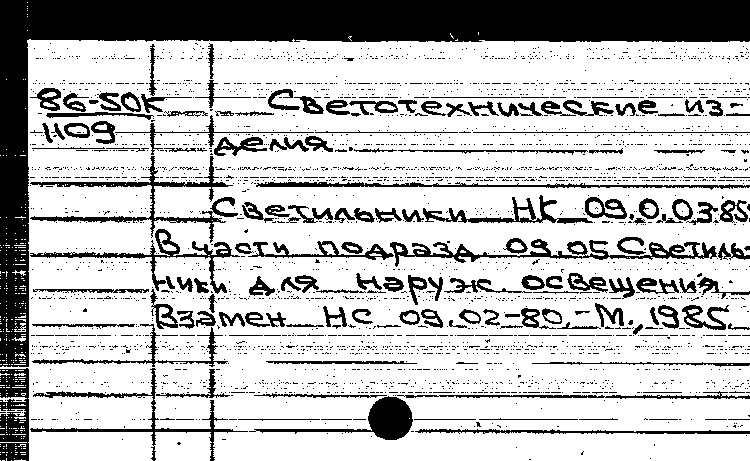 86-50К Светотехнические из-
1109
делия.
Светильники НК 09.0.03-85
В части подразд. 09.05 Светиль-
ники для наруж. освещения.
Взамен НС 09.02-80.-М., 1985.